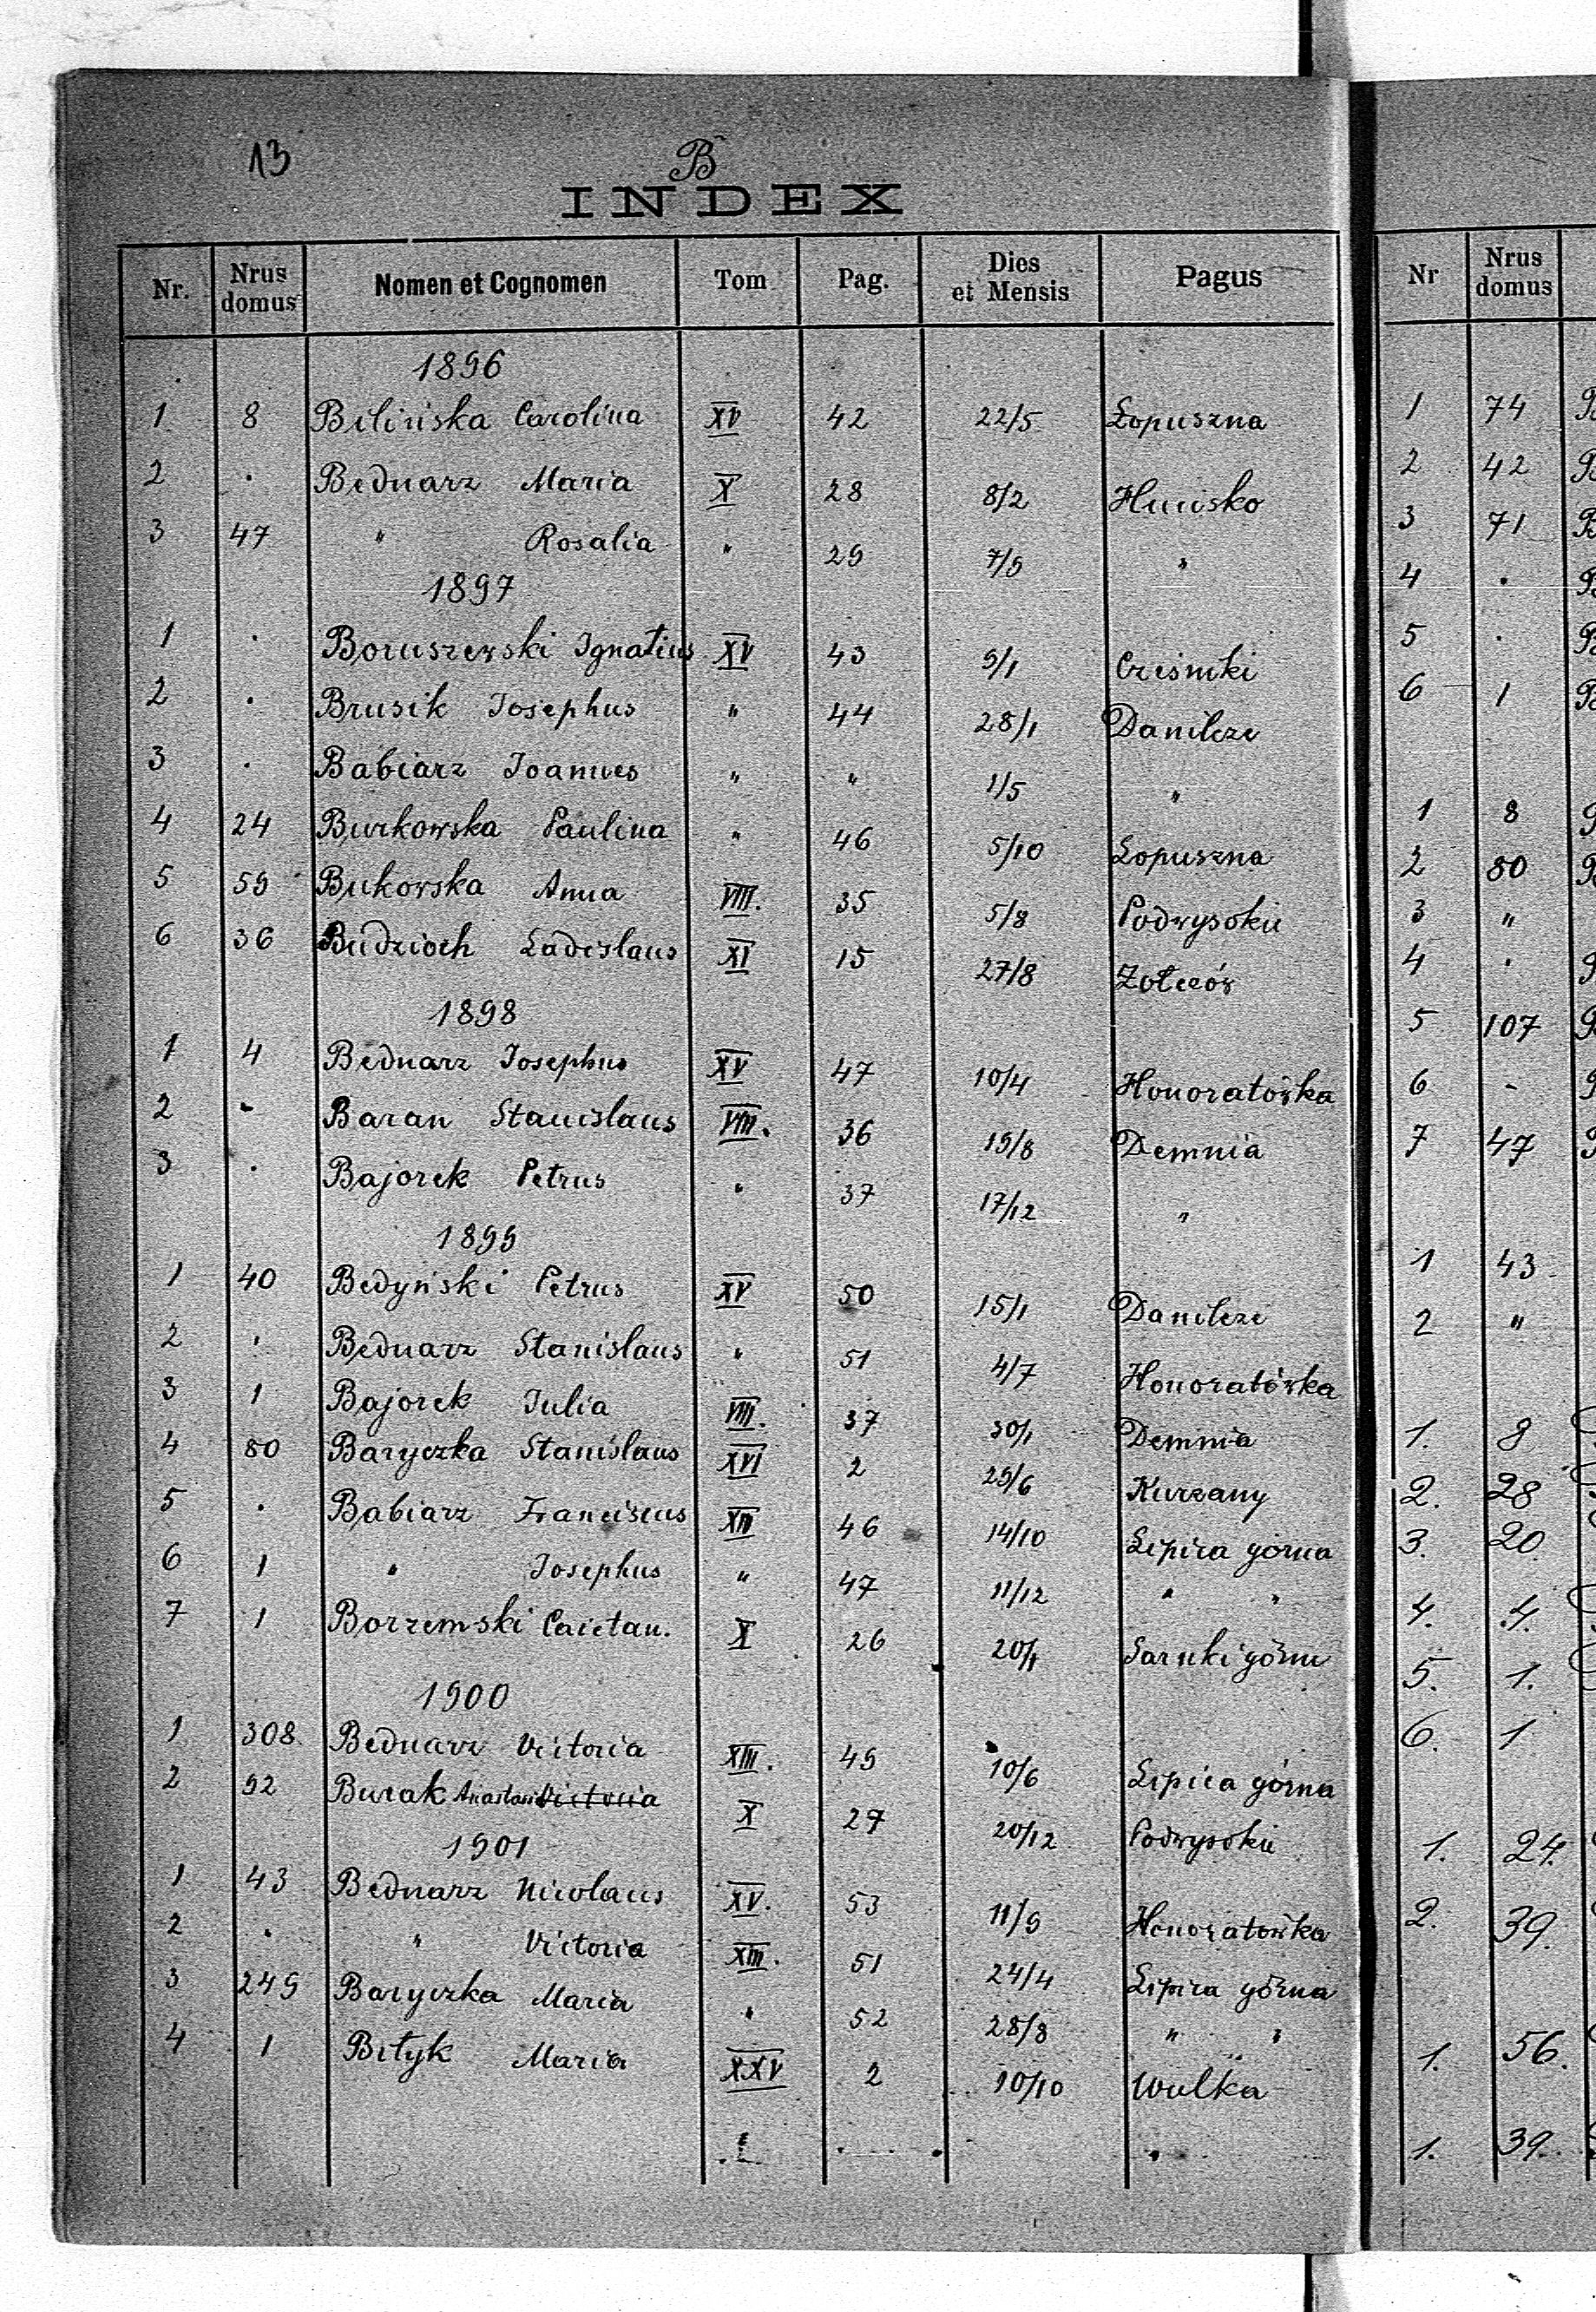 13
B
INDEX
Nr. Nrus domus Nomen et Cognomen Tom Pag. Dies et Mensis Pagus
1896
1 8 Bilińska Carolina XV 42 22/5 Łopuszna
2 . Bednarz Maria X 28 8/2 Hucisko
3 47 " Rosalia " 29 7/9 "
1897
1 . Boruszewski Ignatius XV 43 9/1 Cześniki
2 . Brusik Josephus " 44 28/1 Danilcze
3 . Babiarz Joannes " " 1/5 "
4 24 Burkowska Paulina " 46 5/10 Łopuszna
5 59 Bukowska Anna VIII. 35 5/8 Podwysokie
6 36 Budzioch Ladislaus XI 15 27/8 Żołczów
1898
1 4 Bednarz Josephus XV 47 10/4 Honoratówka
2 " Baran Stanislaus VIII. 36 19/8 Demnia
3 . Bajorek Petrus " 37 17/12 "
1899
1 40 Bedyński Petrus XV 50 15/1 Danilcze
2 . Bednarz Stanislaus " 51 4/7 Honoratówka
3 1 Bajorek Julia VIII. 37 30/1 Demnia
4 80 Baryczka Stanislaus XVI 2 29/6 Kurzany
5 . Babiarz Franciscus XIII 46 14/10 Lipica górna
6 1 " Josephus " 47 11/12 " "
7 1 Borzemski Caietan. X 26 20/1 Sarnki górne
1900
1 308 Bednarz Victoria XIII. 49 10/6 Lipica górna
2 92 Burak Anastasia Victoria X 27 20/12 Podwysokie
1901
1 43 Bednarz Nicolaus XV. 53 11/9 Honoratówka
2 . " Victoria XIII. 51 24/4 Lipica górna
3 249 Baryczka Maria " 52 28/8 " "
4 1 Bityk Maria XXV 2 10/10 Wulka
Nr Nrus domus
1 74
2 42
3 71
4 .
5 .
6 1
1 8
2 80
3 "
4 .
5 107
6 -
7 47
1 43
2 "
1. 8
2. 28
3. 20
4. 4.
5. 1.
6. 1
1. 24.
2. 39.
1. 56.
1. 39.